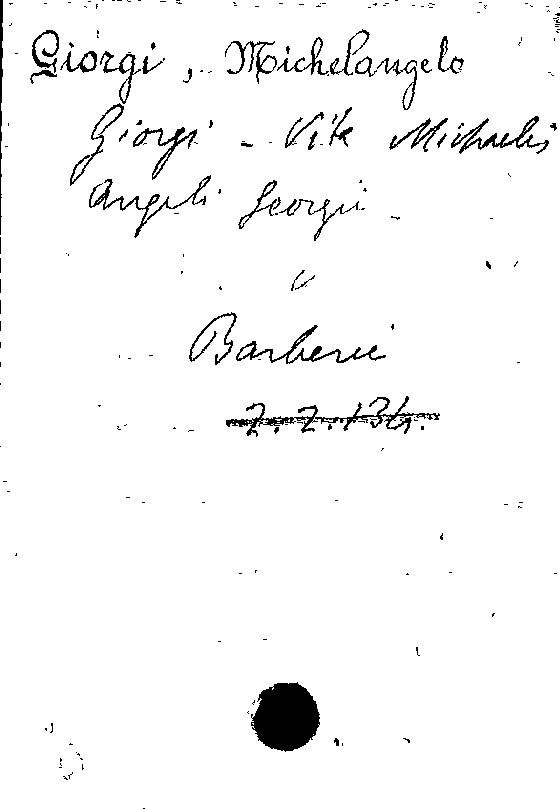 Giorgi, Michelangelo
Giorgi - Vita Michaelis
Angeli Georgii -
v
Barberii
Z. Z. 134.